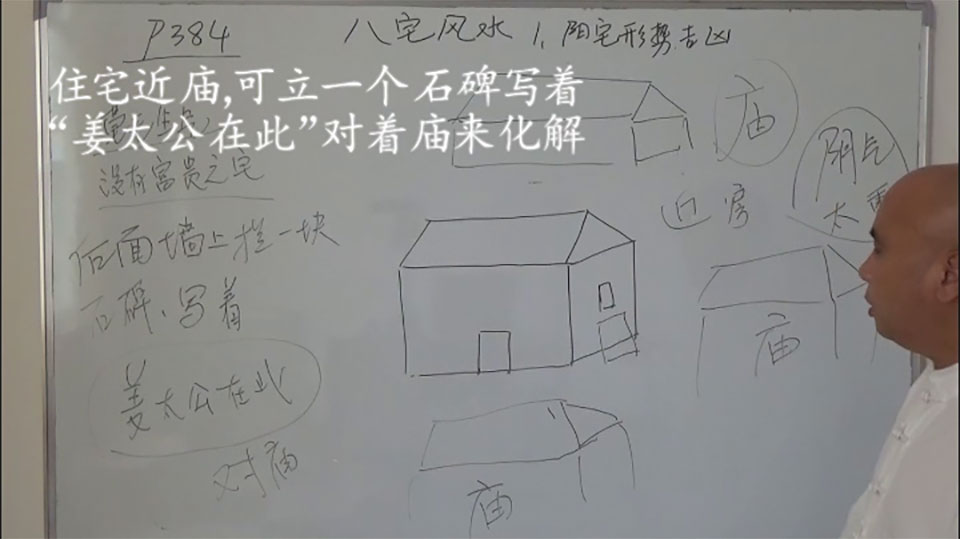 P384
八宅风水 1、阳宅形势吉凶
住宅近庙,可立一个石碑写着
“姜太公在此”对着庙来化解
没有富贵之宅
后面墙上拦一块
石碑、写着
姜太公在此
对庙
庙
阴气
太重
近房
庙
庙